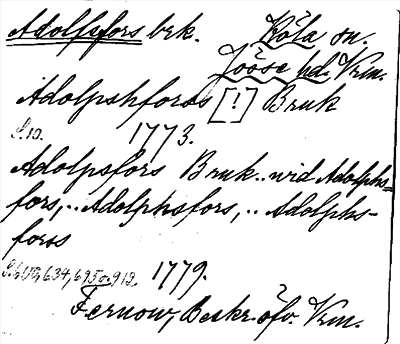 Adolfsfors brk. Köla sn.
Jösse hd. Vrm.
Adolpshforss [!] Bruk
S. 10. 1773.
Adolpsfors Bruk.. wid Adolphs=
fors,.. Adolphsfors,.. Adolphs-
forss
634, 695 o. 912. 1779.
Fernow, Beskr. öfv. Vrm.